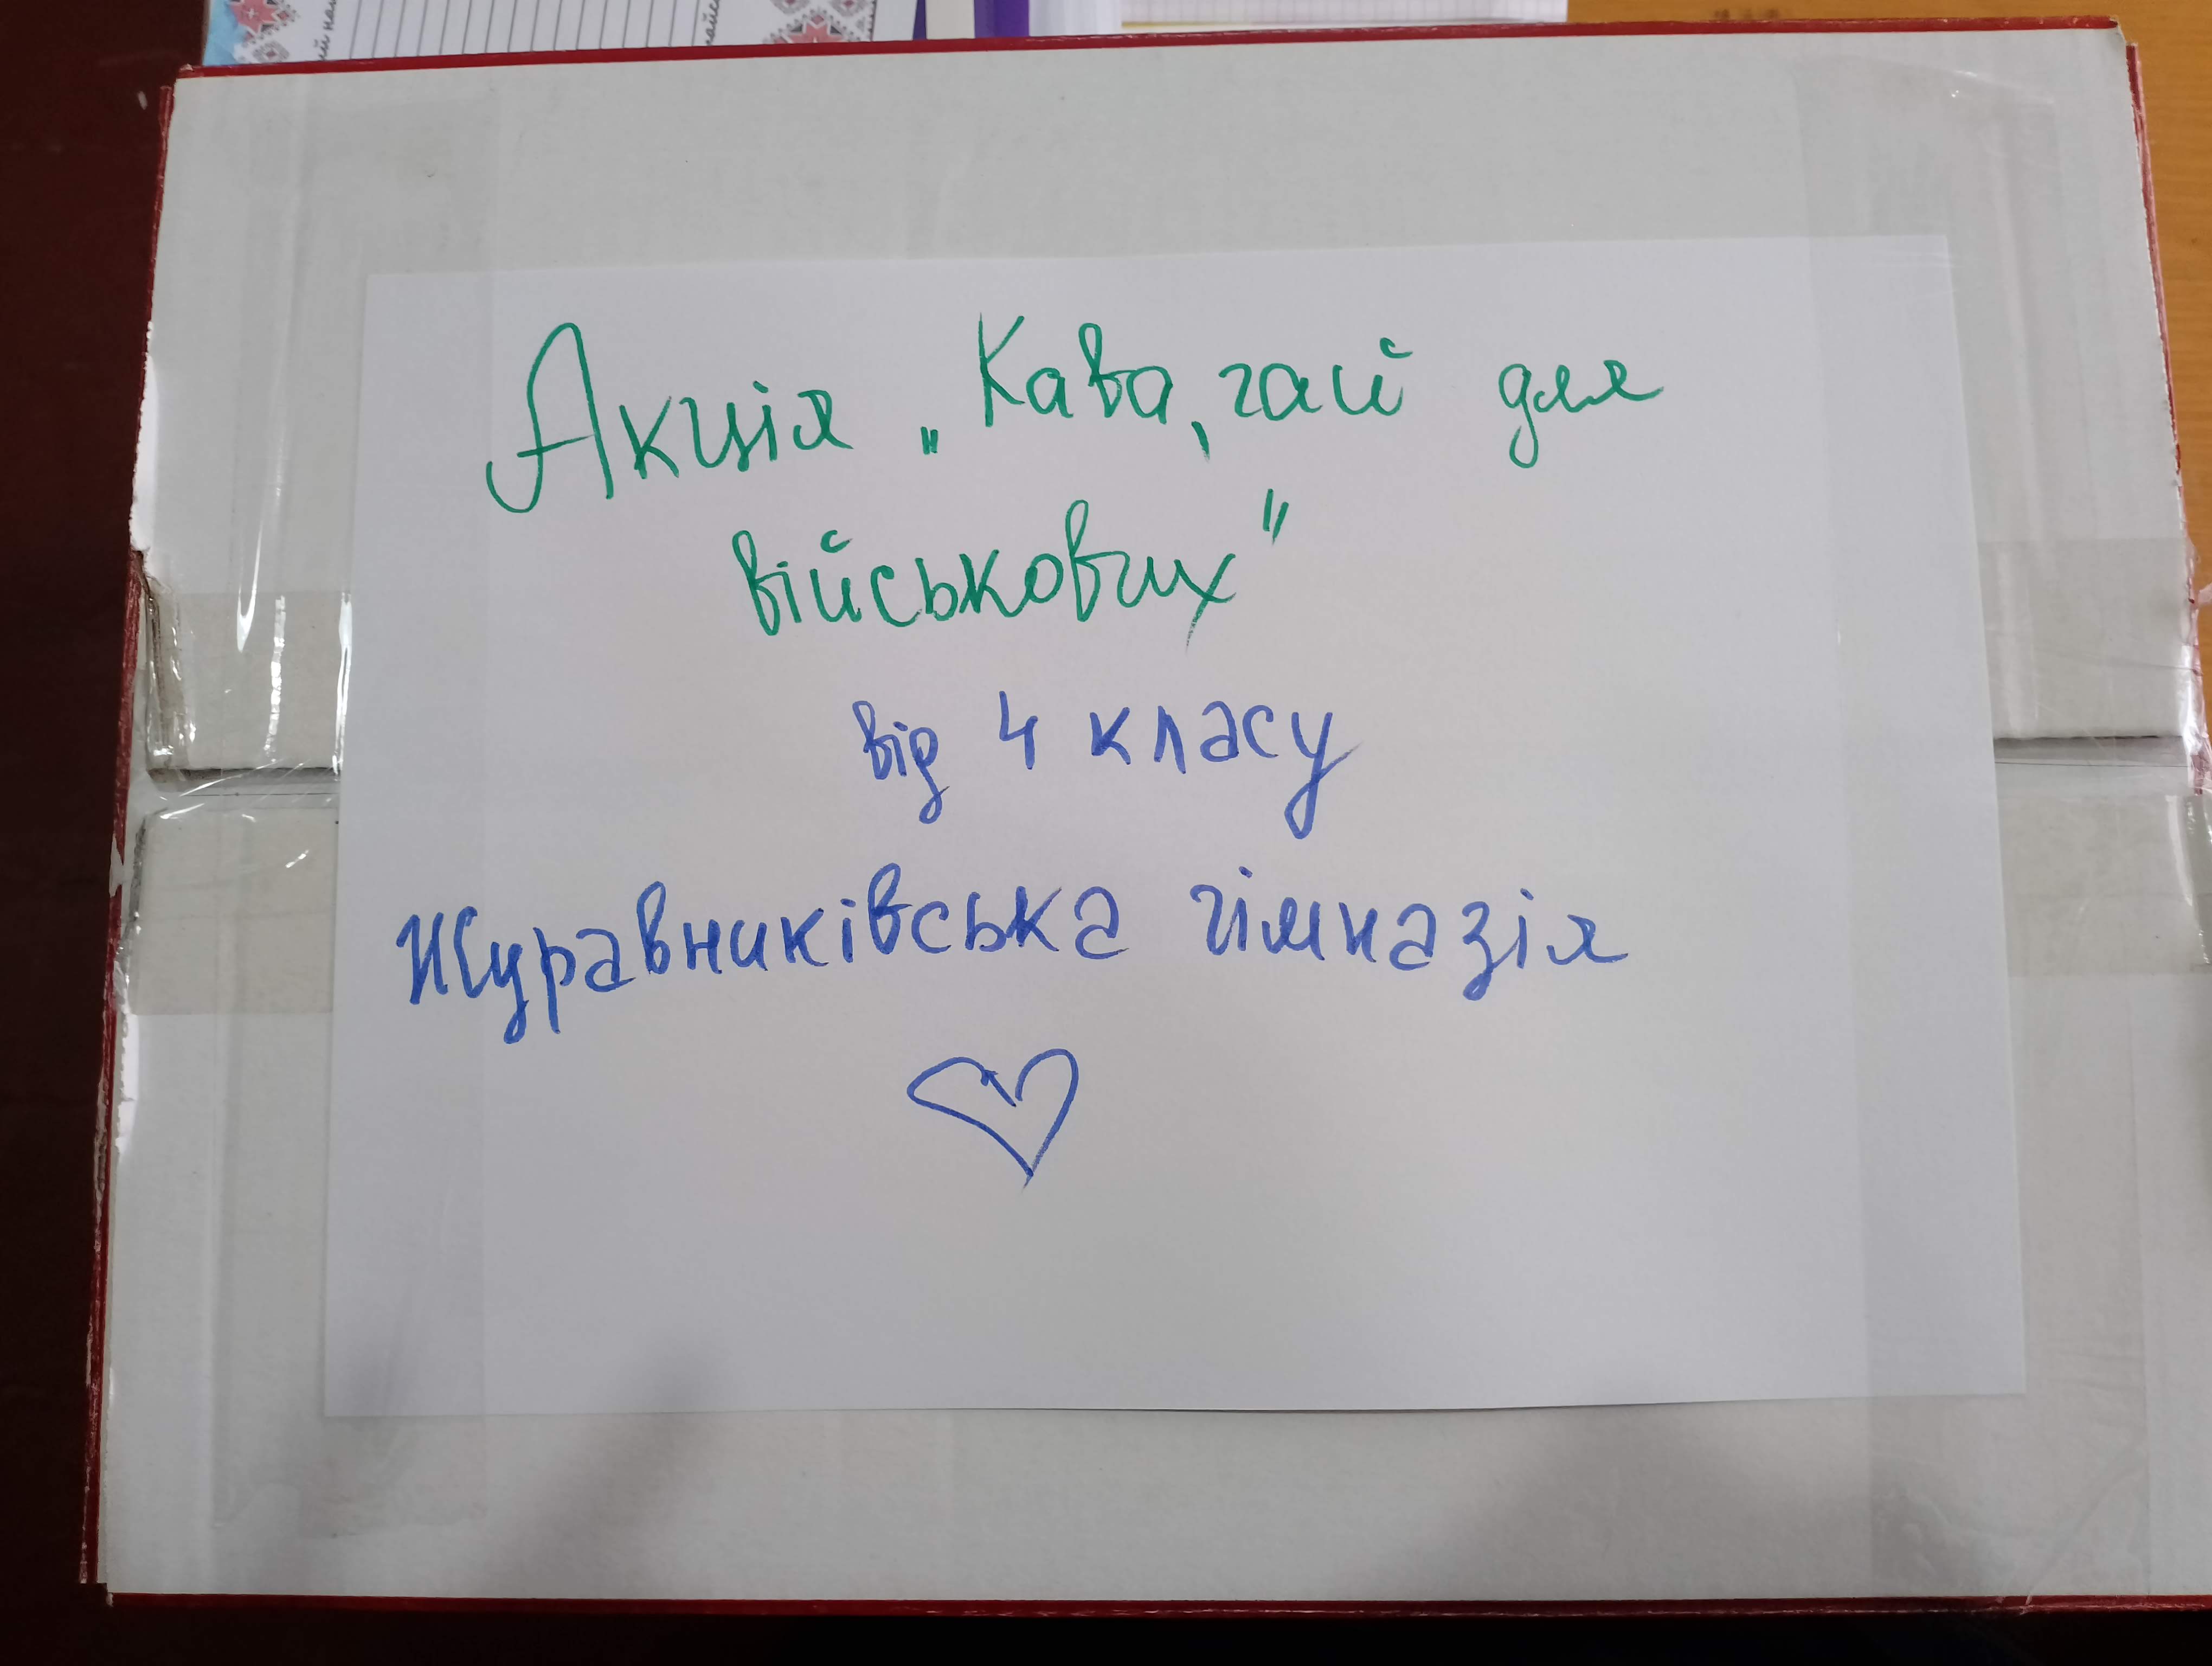 Акція „Кава, чай для
військових"
від 4 класу
Журавниківська гімназія